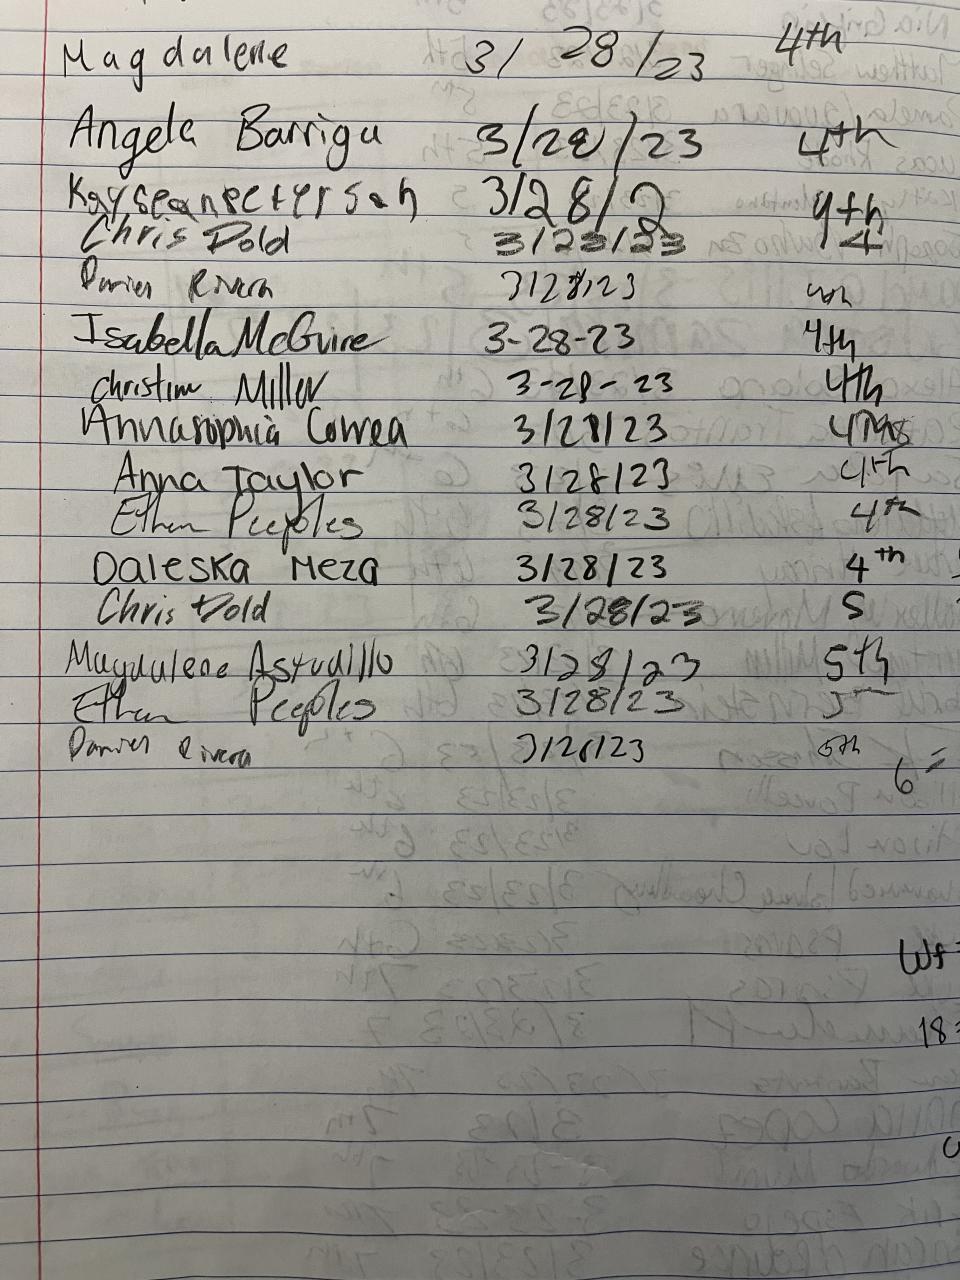 Magdalene 3/ 28 /23 4th
Angela Barriga 3/28/23 4th
Kayseanpeterson 3/28/2 4th
Chris Dold 3/23/23 4
Rivera 3/28/23 4th
Isabella McGuire 3-28-23 4th
Christina Miller 3-28-23 4th
Annasophia Correa 3/28/23
Anna Taylor 3/28/23 4th
Ethan Peeples 3/28/23 4th
Daleska Meza 3/28/23 4th
Chris Dold 3/28/23 5
Magdalene Astudillo 3/28/23 5th
Ethan Peeples 3/28/23 5
Rivera 3/28/23 5th
6 =
Wf
18 =